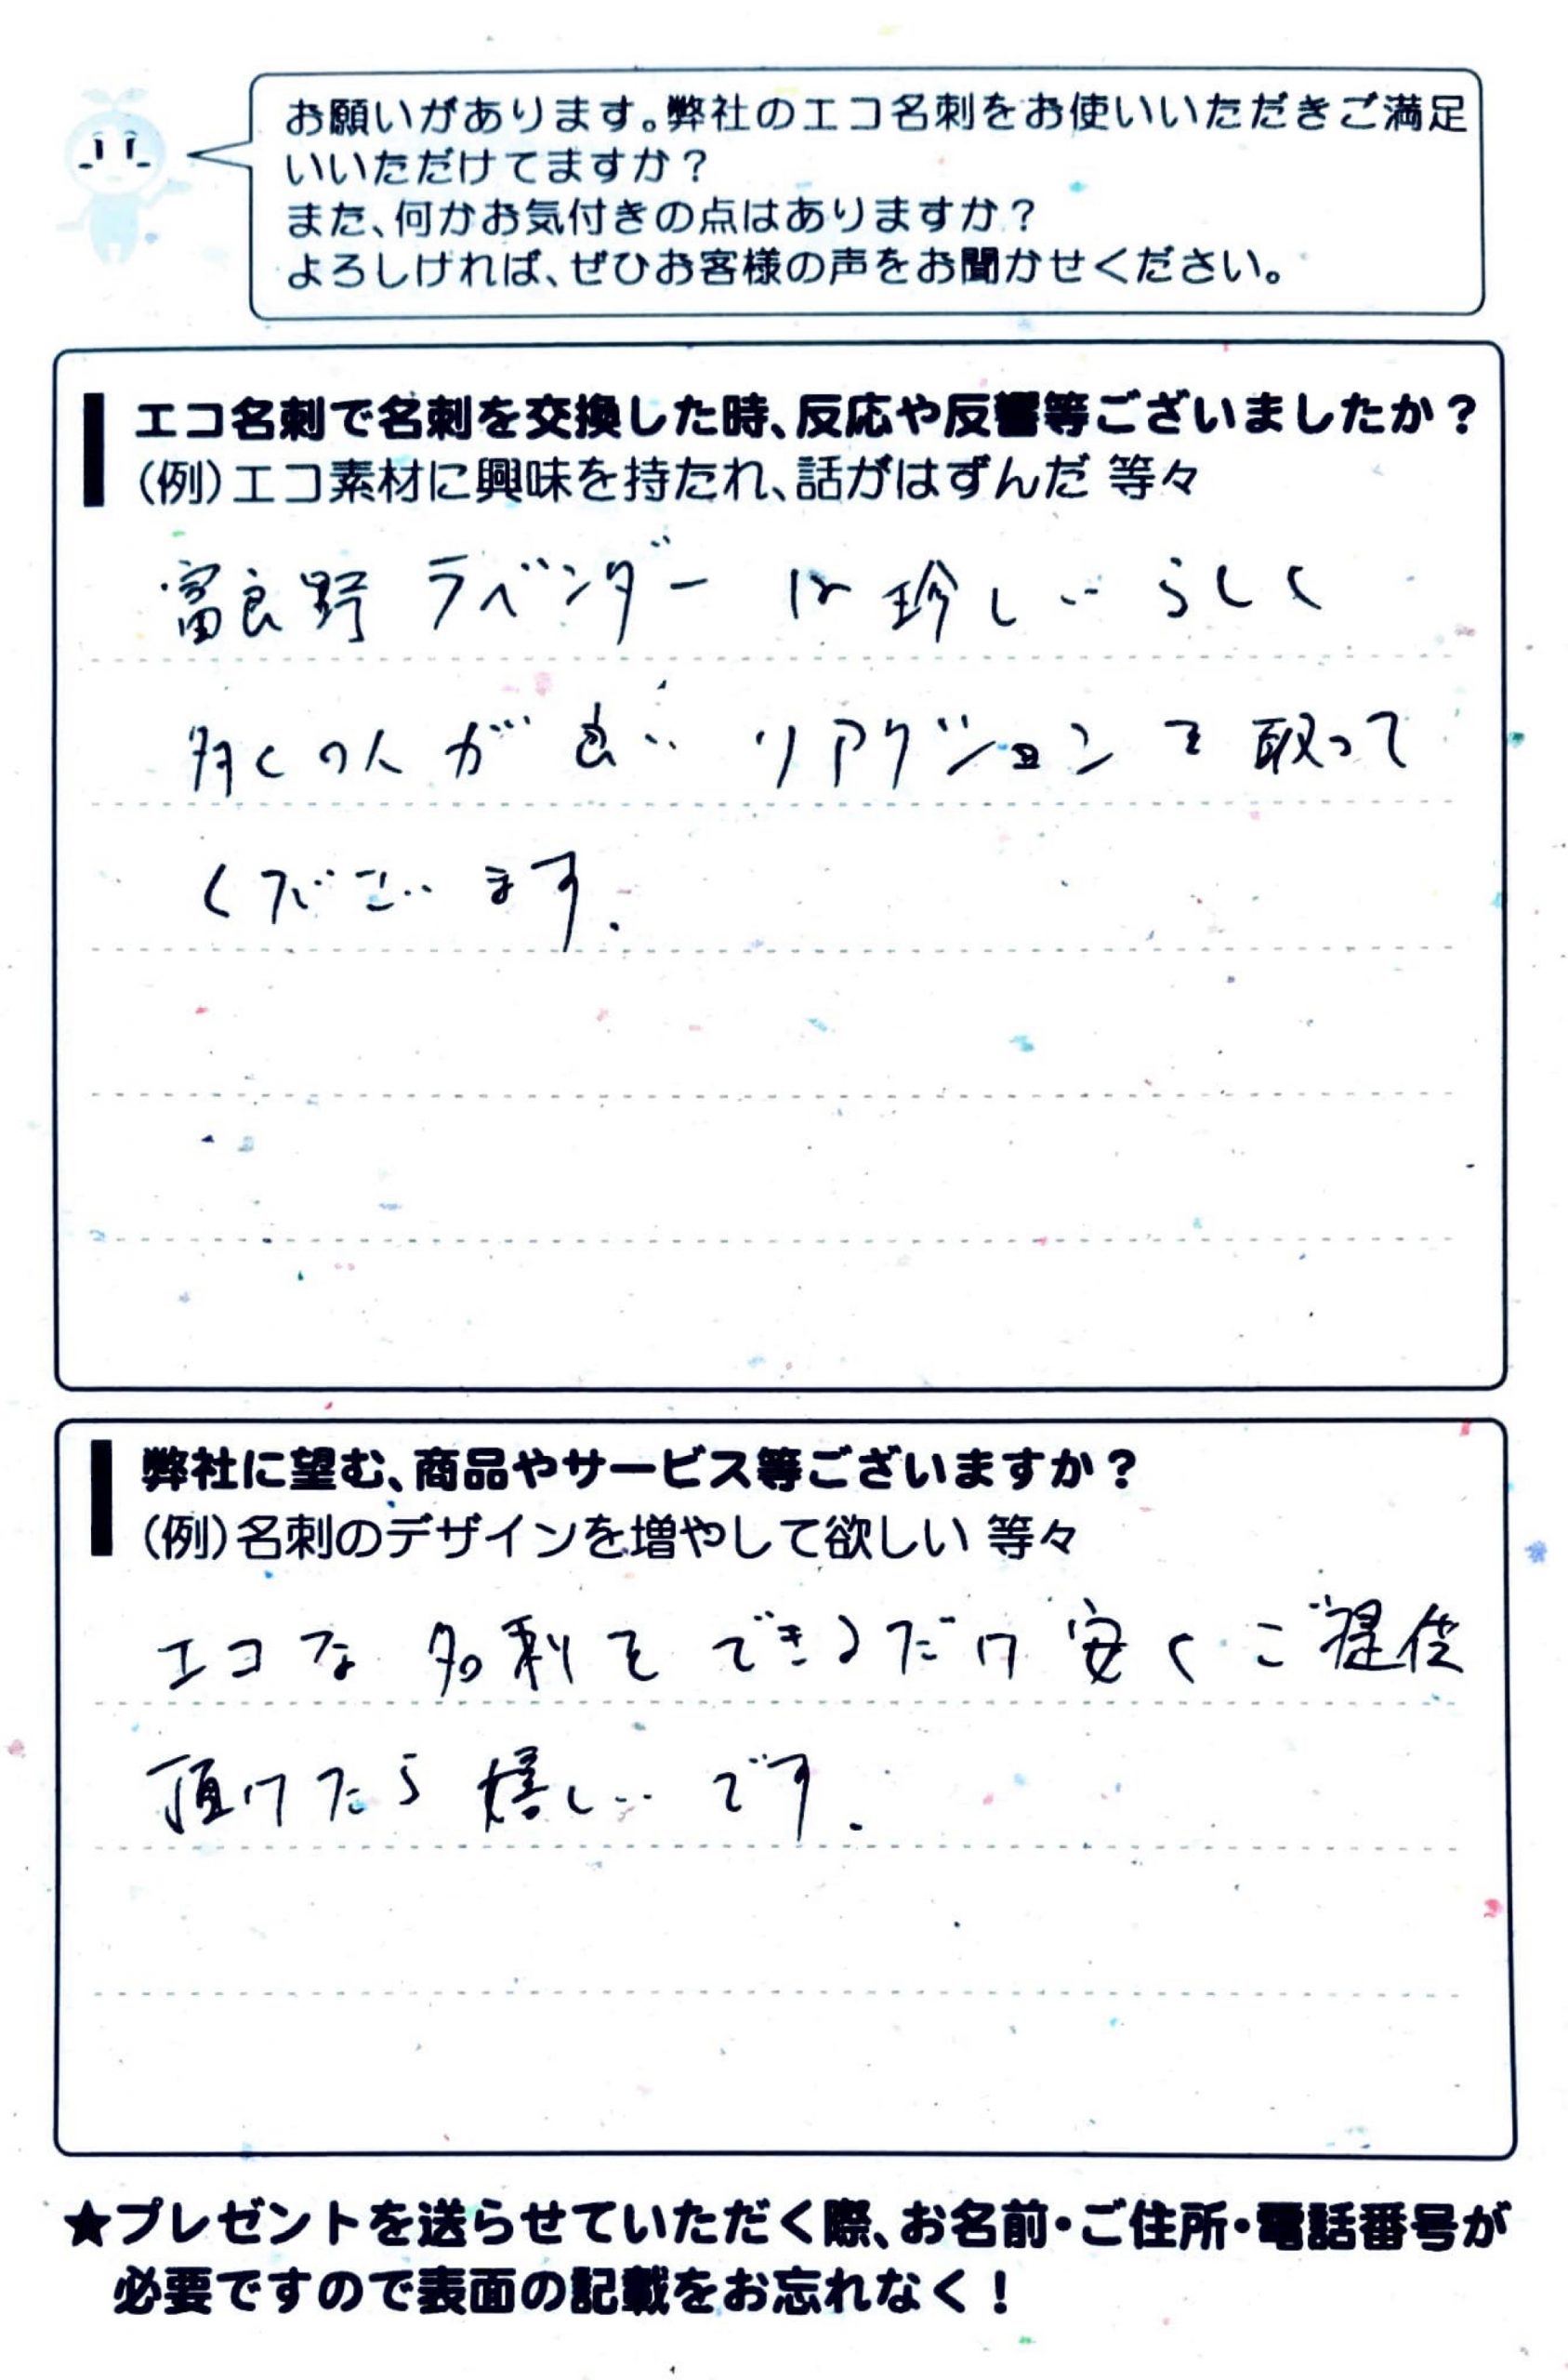 お願いがあります。弊社のエコ名刺をお使いいただきご満足
いいただけてますか？
また、何かお気付きの点はありますか？
よろしければ、ぜひお客様の声をお聞かせください。
エコ名刺で名刺を交換した時、反応や反響等ございましたか？
（例）エコ素材に興味を持たれ、話がはずんだ 等々
富良野ラベンダーは珍しいらしく
多くの人が良いリアクションを取って
くださいます.
弊社に望む、商品やサービス等ございますか？
（例）名刺のデザインを増やして欲しい 等々
エコな名刺をできるだけ安くご提供
頂けたら嬉しいです.
★プレゼントを送らせていただく際、お名前・ご住所・電話番号が
必要ですので表面の記載をお忘れなく！